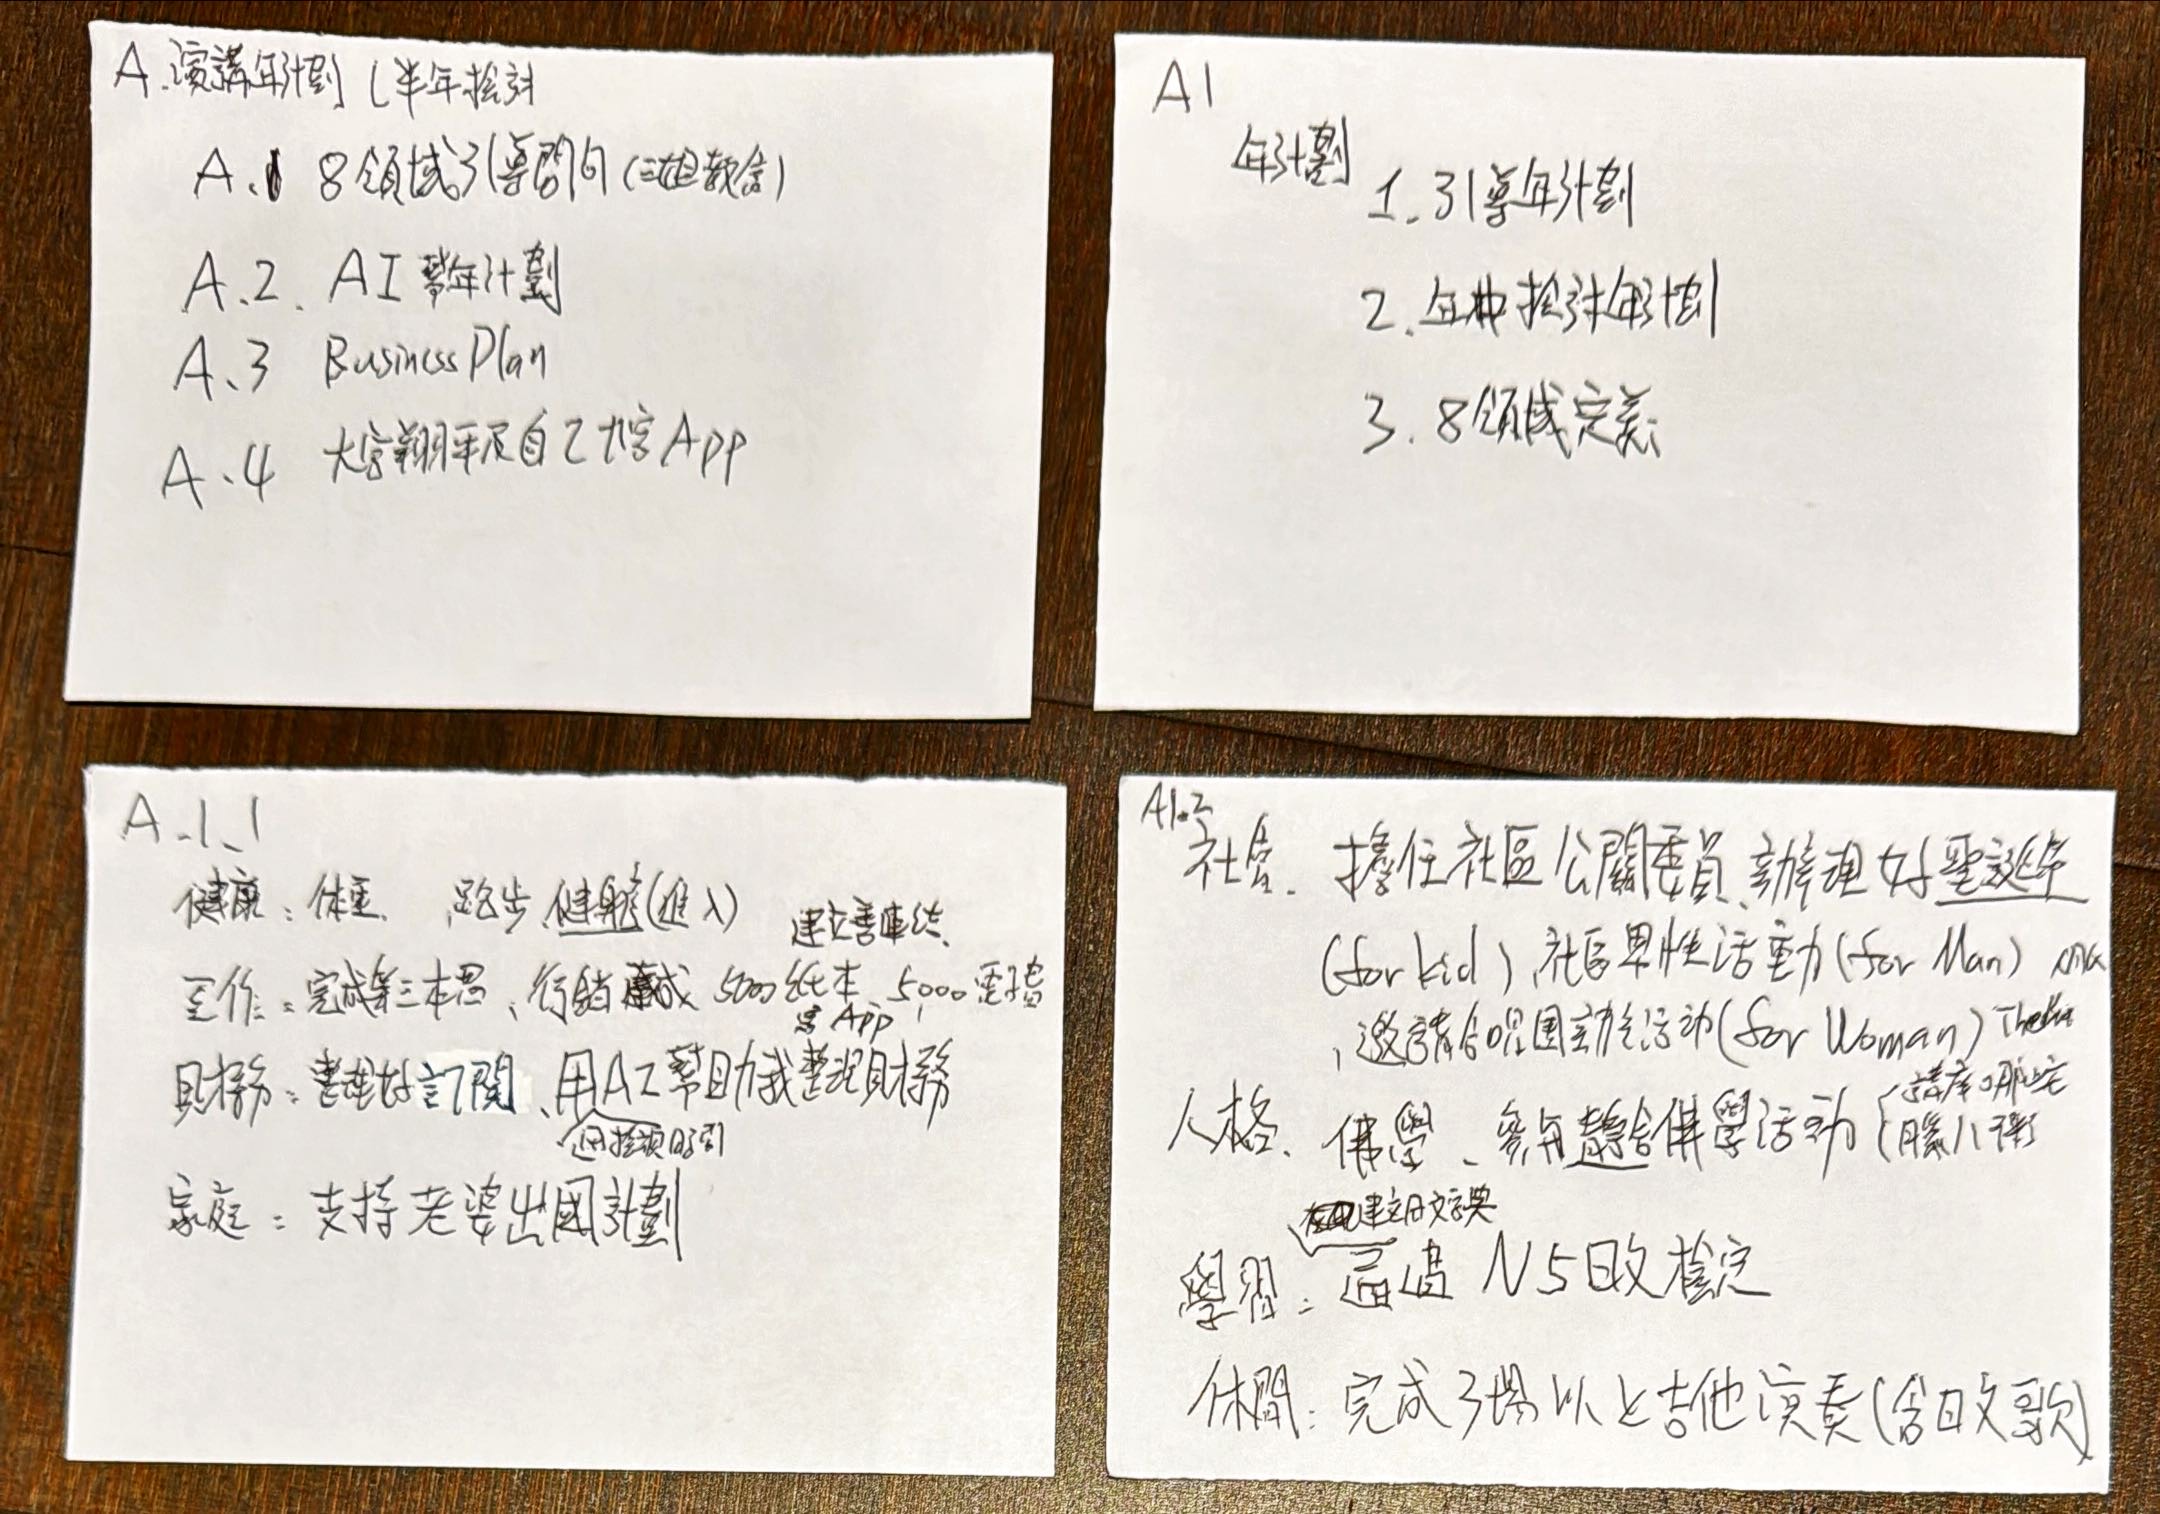 A.演講年計劃(半年檢討
A.1 8領域引導問句
A.2. AI 幫年計劃
A.3 Business Plan
A.4 大谷翔平及自己大谷App
A1
年計劃
1.引導年計劃
2.年中檢討年計劃
3.8領域定義
A-1-1
健康:體重、跑步、健身(進入)
工作:完成第三本書、行銷 5000紙本、5000電子書
寫App
財務:整理好訂閱、用AI幫助我整理財務
家庭:支持老婆出國計劃
A1.2
社會. 擔任社區公關委員、辦理好聖誕
(for kid)、社區男性活動(for Man)
、邀請合唱團活动(for Woman)
人格. 佛學、參與佛學活动
建立日文字典
學習:通過N5日文檢定
休閒:完成3場以上吉他演奏(含日文歌)